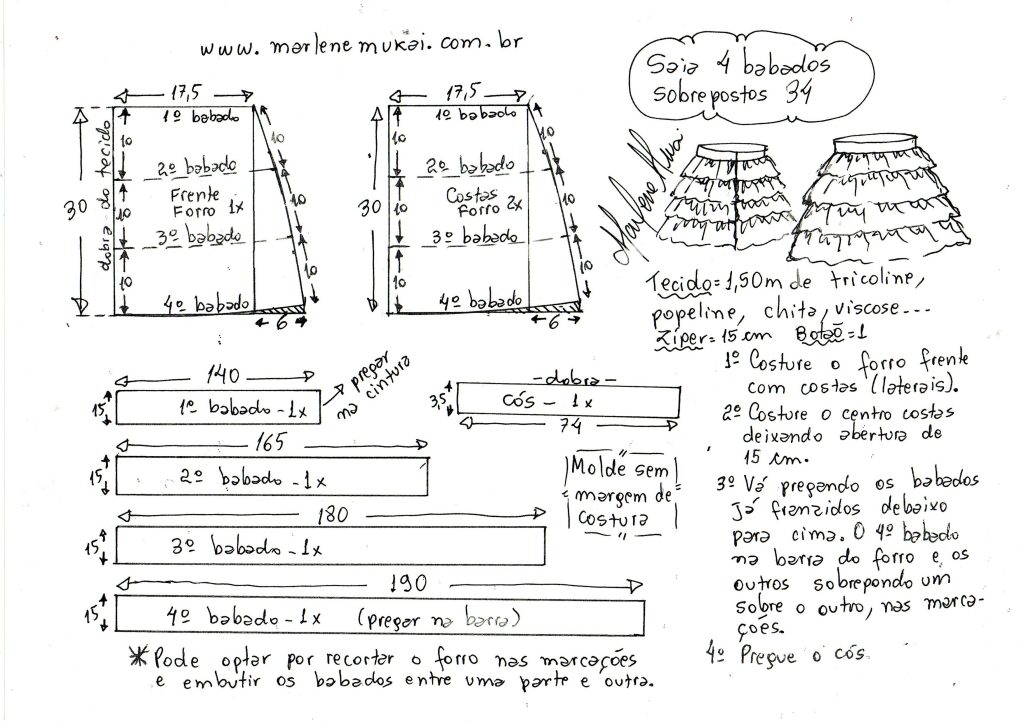 www.marlenemukai.com.br
Saia 4 babados
sobrepostos 34
17,5
1º babado
10
10
2º babado
Frente
Forro 1x
30
dobra do tecido
10
10
3º babado
10
10
4º babado
6
17,5
1º babado
10
10
2º babado
Costas
forro 2x
30
10
10
3º babado
10
10
4º babado
6
Marlene Mukai
Tecido=1,50m de tricoline,
popeline, chita, viscose...
Zíper=15cm Botão=1
1º Costure o forro frente
com costas (laterais).
2º Costure o centro costas
deixando abertura de
15 cm.
3º Vá pregando os babados
já franzidos debaixo
para cima. O 4º babado
na barra do forro e os
outros sobrepondo um
sobre o outro, nas marca-
ções.
4º Pregue o cós
140
15
1º babado - 1x
pregar
na cintura
- dobra -
3,5
cós - 1x
74
165
15
2º babado - 1x
Molde sem
margem de
costura
180
15
3º babado - 1x
190
15
4º babado - 1x (pregar na barra)
* Pode optar por recortar o forro nas marcações
e embutir os babados entre uma parte e outra.